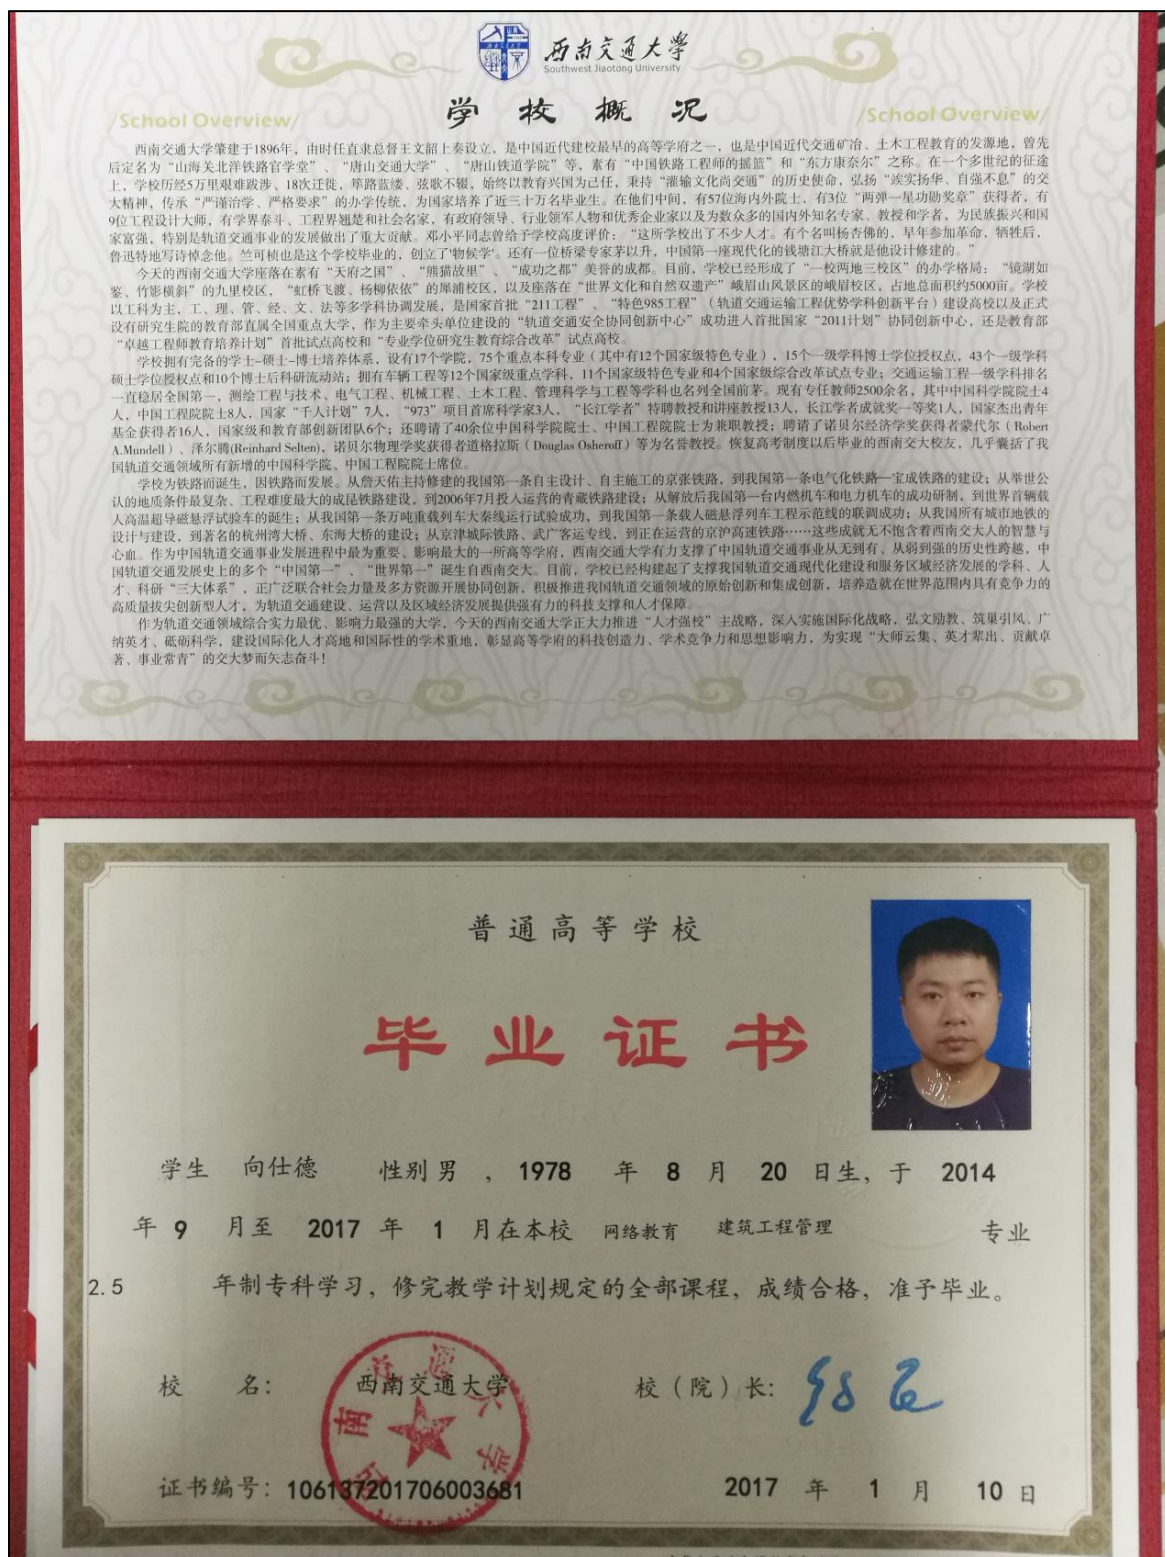 西南交通大學
Southwest Jiaotong University
学校概况
/School Overview/ /School Overview/
西南交通大学肇建于1896年，由时任直隶总督王文韶上奏设立，是中国近代建校最早的高等学府之一，也是中国近代交通矿冶、土木工程教育的发源地，曾先
后定名为“山海关北洋铁路官学堂”、“唐山交通大学”、“唐山铁道学院”等，素有“中国铁路工程师的摇篮”和“东方康奈尔”之称。在一个多世纪的征途
上，学校历经5万里艰难跋涉、18次迁徙，筚路蓝缕、弦歌不辍，始终以教育兴国为己任，秉持“灌输文化尚交通”的历史使命，弘扬“竢实扬华、自强不息”的交
大精神，传承“严谨治学、严格要求”的办学传统，为国家培养了近三十万名毕业生。在他们中间，有57位海内外院士，有3位“两弹一星功勋奖章”获得者，有
9位工程设计大师，有学界泰斗、工程界翘楚和社会名家，有政府领导、行业领军人物和优秀企业家以及为数众多的国内外知名专家、教授和学者，为民族振兴和国
家富强，特别是轨道交通事业的发展做出了重大贡献。邓小平同志曾给予学校高度评价：“这所学校出了不少人才。有个名叫杨杏佛的，早年参加革命，牺牲后，
鲁迅特地写诗悼念他。竺可桢也是这个学校毕业的，创立了‘物候学’。还有一位桥梁专家茅以升，中国第一座现代化的钱塘江大桥就是他设计修建的。”
今天的西南交通大学座落在素有“天府之国”、“熊猫故里”、“成功之都”美誉的成都。目前，学校已经形成了“一校两地三校区”的办学格局：“镜湖如
鉴、竹影横斜”的九里校区，“虹桥飞渡、杨柳依依”的犀浦校区，以及座落在“世界文化和自然双遗产”峨眉山风景区的峨眉校区，占地总面积约5000亩。学校
以工科为主，工、理、管、经、文、法等多学科协调发展，是国家首批“211工程”、“特色985工程”（轨道交通运输工程优势学科创新平台）建设高校以及正式
设有研究生院的教育部直属全国重点大学，作为主要牵头单位建设的“轨道交通安全协同创新中心”成功进入首批国家“2011计划”协同创新中心，还是教育部
“卓越工程师教育培养计划”首批试点高校和“专业学位研究生教育综合改革”试点高校。
学校拥有完备的学士-硕士-博士培养体系，设有17个学院，75个重点本科专业（其中有12个国家级特色专业），15个一级学科博士学位授权点，43个一级学科
硕士学位授权点和10个博士后科研流动站；拥有车辆工程等12个国家级重点学科，11个国家级特色专业和4个国家级综合改革试点专业；交通运输工程一级学科排名
一直稳居全国第一，测绘工程与技术、电气工程、机械工程、土木工程、管理科学与工程等学科也名列全国前茅。现有专任教师2500余名，其中中国科学院院士4
人，中国工程院院士8人，国家“千人计划”7人，“973”项目首席科学家3人，“长江学者”特聘教授和讲座教授13人，长江学者成就奖一等奖1人，国家杰出青年
基金获得者16人，国家级和教育部创新团队6个；还聘请了40余位中国科学院院士、中国工程院院士为兼职教授；聘请了诺贝尔经济学奖获得者蒙代尔（Robert
A.Mundell）、泽尔腾(Reinhard Selten)，诺贝尔物理学奖获得者道格拉斯（Douglas Osheroff）等为名誉教授。恢复高考制度以后毕业的西南交大校友，几乎囊括了我
国轨道交通领域所有新增的中国科学院、中国工程院院士席位。
学校为铁路而诞生，因铁路而发展。从詹天佑主持修建的我国第一条自主设计、自主施工的京张铁路，到我国第一条电气化铁路—宝成铁路的建设；从举世公
认的地质条件最复杂、工程难度最大的成昆铁路建设，到2006年7月投入运营的青藏铁路建设；从解放后我国第一台内燃机车和电力机车的成功研制，到世界首辆载
人高温超导磁悬浮试验车的诞生；从我国第一条万吨重载列车大秦线运行试验成功，到我国第一条载人磁悬浮列车工程示范线的联调成功；从我国所有城市地铁的
设计与建设，到著名的杭州湾大桥、东海大桥的建设；从京津城际铁路、武广客运专线，到正在运营的京沪高速铁路……这些成就无不饱含着西南交大人的智慧与
心血。作为中国轨道交通事业发展进程中最为重要、影响最大的一所高等学府，西南交通大学有力支撑了中国轨道交通事业从无到有、从弱到强的历史性跨越，中
国轨道交通发展史上的多个“中国第一”、“世界第一”诞生自西南交大。目前，学校已经构建起了支撑我国轨道交通现代化建设和服务区域经济发展的学科、人
才、科研“三大体系”，正广泛联合社会力量及多方资源开展协同创新，积极推进我国轨道交通领域的原始创新和集成创新，培养造就在世界范围内具有竞争力的
高质量拔尖创新型人才，为轨道交通建设、运营以及区域经济发展提供强有力的科技支撑和人才保障。
作为轨道交通领域综合实力最优、影响力最强的大学，今天的西南交通大学正大力推进“人才强校”主战略，深入实施国际化战略，弘文励教、筑巢引凤、广
纳英才、砥砺科学，建设国际化人才高地和国际性的学术重地，彰显高等学府的科技创造力、学术竞争力和思想影响力，为实现“大师云集、英才辈出、贡献卓
著、事业常青”的交大梦而矢志奋斗！
普通高等学校
毕业证书
学生 向仕德 性别 男 ，1978 年 8 月 20 日生，于 2014
年 9 月至 2017 年 1 月在本校 网络教育 建筑工程管理 专业
2.5 年制专科学习，修完教学计划规定的全部课程，成绩合格，准予毕业。
校 名： 西南交通大学 校（院）长：
西南交通大学
证书编号：106137201706003681 2017 年 1 月 10 日